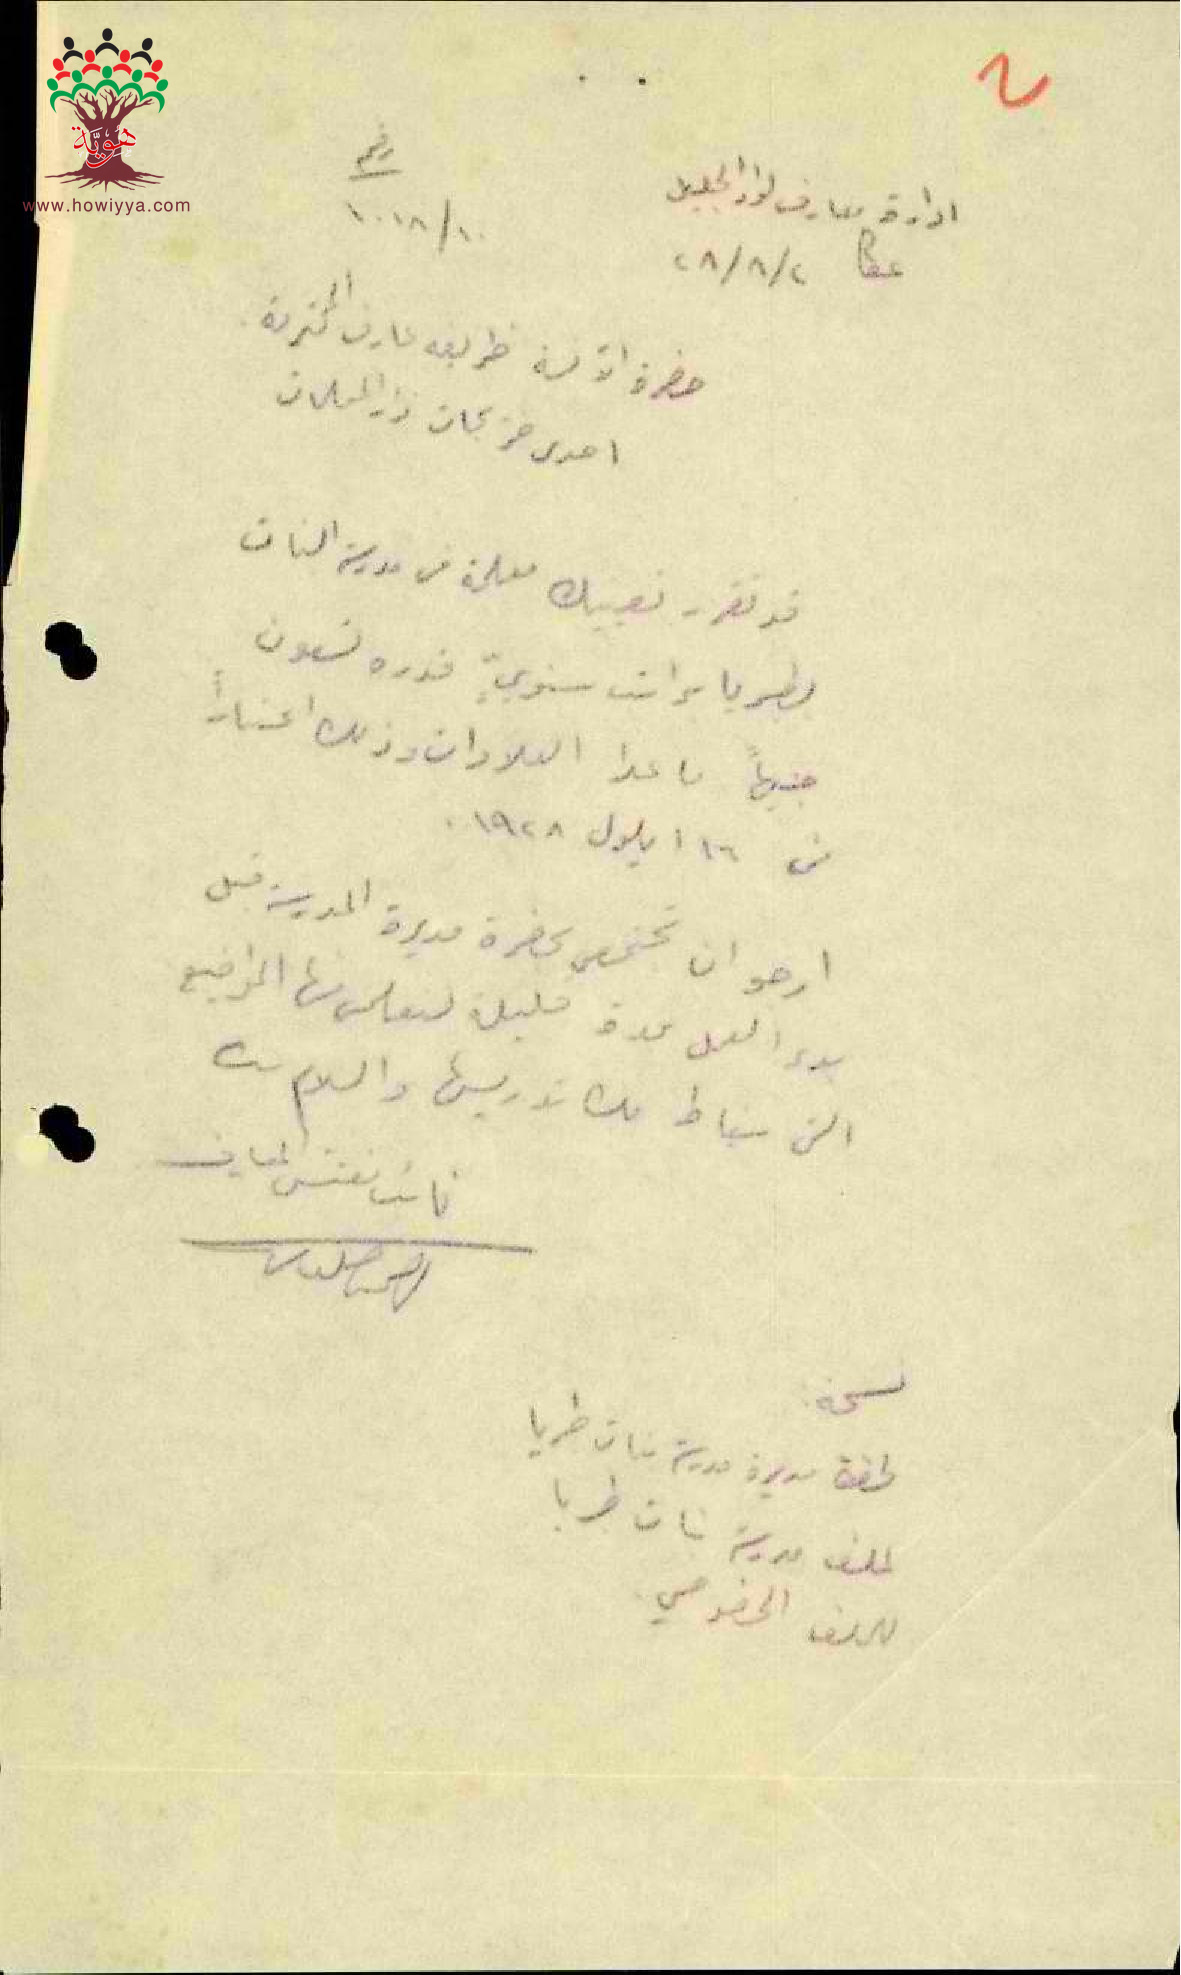 هوية
www.howiyya.com
ادارة معارف لواء الجليل
عكا ٢٨/٨/٢
رقم
١٠١٨/١٠
حضرة الآنسة ظريفه عارف المحترمة.
احدى خريجات دار المعلمات
قد تقرر تعيينك معلمة في مدرسة البنات
بطبريا براتب سنويّ قدره تسعون
جنيهاً ما عدا العلاوات وذلك اعتباراً
من ١٦ ايلول ١٩٢٨.
ارجو ان تجتمعي بحضرة مديرة المدرسة قبل
بدء العمل بمدة قليلة لتعلمي منها المواضيع
التي سيناط بك تدريسها والسلام عليك
نائب مفتش المعارف
نسخة:
لحضرة مديرة مدرسة بنات طبريا
لملف مدرسة بنات طبريا
للملف الخصوصي.